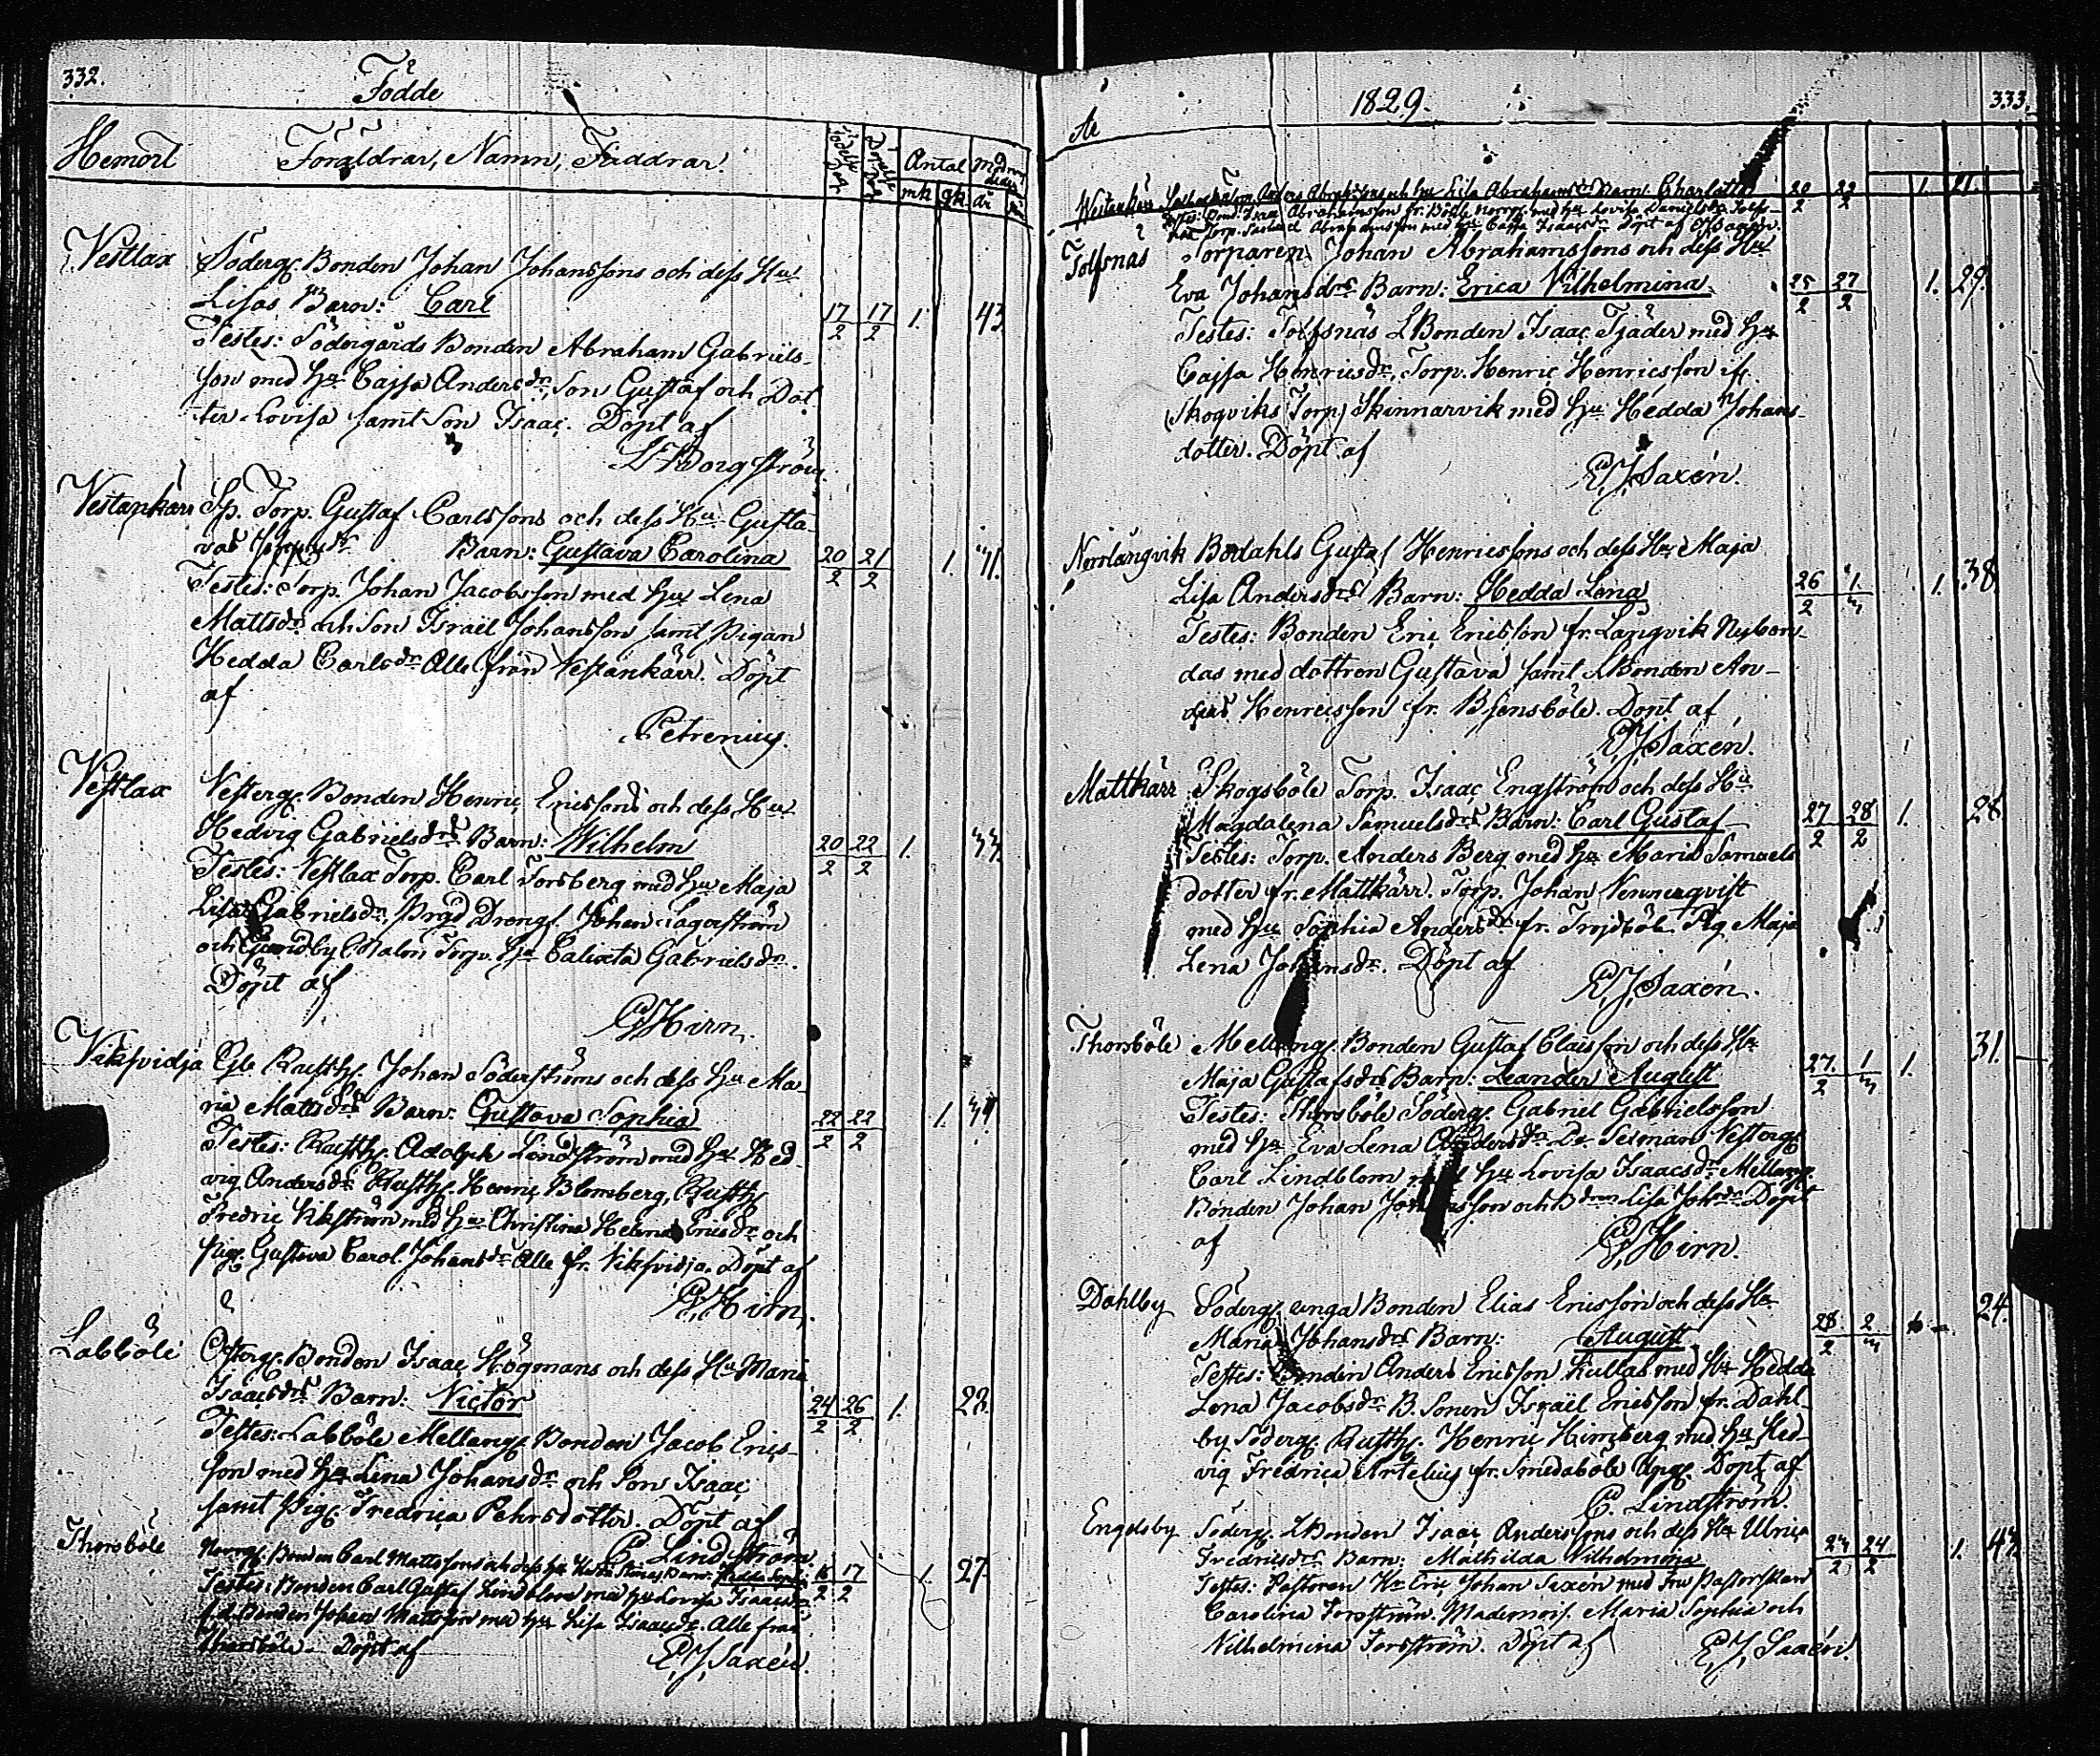 332.
Födde
Hemort Föräldrar, Namn, Faddrar. Födelse Dag Döpelse Dag Antal Modrens ålder
mk qk
Vestlax Söderg. Bonden Johan Johanssons och dess Hu
Lisas Barn: Carl 17/2 17/2 1. 43.
Testes: Södergårds Bonden Abraham Gabriels-
son med Hu Cajsa Andersdr, Son Gustaf och Dot-
ter Lovisa samt Son Isaac. Döpt af
Borgström
Vestankärr Sp. Torp. Gustaf Carlssons och dess Hu Gusta-
vas Barn: Gustava Carolina 20/2 21/2 1.
Testes: Torp. Johan Jacobsson med Hu Lena
Mattsdr och Son Israël Johansson samt Pigan
Hedda Carlsdr Alle från Vestankärr. Döpt
af
Petrenius.
Vestlax Vesterg. Bonden Henric Ericssons och dess Hu
Hedvig Gabrielsdrs Barn: Wilhelm 20/2 22/2 1.
Testes: Vestlax Torp. Carl Forsberg med Hu Maja
Lisa Gabrielsdr, Dreng. Johan Lagerström
och Torp. Hu Calixta Gabrielsdr.
Döpt af
Hirn.
Vikfvidja Rustth. Johan Söderströms och dess Hu Ma-
ria Mattsdrs Barn: Gustava Sophia 22/2 22/2 1.
Testes: Rustth. Adolph Lindström med Hu Hed-
vig Andersdr Rustth. Henric Blomberg, Rustth.
Fredric med Hu Christina Ericsdr och
Pig. Gustava Carol. Johansdr Alle fr. Vikfvidja. Döpt af
Hirn.
Labböle Österg. Bonden Isaac Högmans och dess Hu Maria
Isaacsdrs Barn: Victor 24/2 26/2 1. 22.
Testes: Labböle Mellang. Bonden Jacob Erics-
son med Hu Lena Johansdr och Son Isaac
samt Pig. Fredrica Pehrsdotter. Döpt af
C. Lindström
Thorsböle Norrg. Bonden Carl Mattssons och dess Hu Barn: Hedda Sophia 16/2 17/2 1. 27.
Testes: Bonden Carl Gustaf Lindblom med Hu Lovisa Isaacsdr
Bonden Johan Mattsson med Hu Lisa Isaacsdr. Alle från
Thorsböle. Döpt af E. J. Saxén.
År 1829. 333.
Westankärr Anders Abrahamssons och Hu Lisa Abrahamsdrs Barn: Charlotta 20/2 22/2 1. 21.
Testes: Bond. Isaac Abrahamsson fr. Böhle Norrg. med Hu Lovisa Danielsdr
Torp. Abrahamsson med Hu Cajsa Isaacsdr Döpt af Saxén.
Tolfsnäs Torparen Johan Abrahamssons och dess Hu
Eva Johansdrs Barn: Erica Vilhelmina 25/2 27/2 1. 29.
Testes: Tolfsnäs LBonden Isaac Tjäder med Hu
Cajsa Henricsdr, Torp. Henric Henricsson ifr.
(Skogviks Torp) Skinnarvik med Hu Hedda Johans-
dotter. Döpt af
E. J. Saxén.
Norrlångvik Bodahls Gustaf Henricssons och dess Hu Maja
Lisa Andersdrs Barn: Hedda Lena 26/2 1/3 1. 38.
Testes: Bonden Eric Ericsson fr. Långvik Nybon-
das med dottren Gustava samt LBonden An-
ders Henricsson fr. Bjensböle. Döpt af
E. J. Saxén.
Mattkärr Skogsböle Torp. Isaac Engström och dess Hu
Magdalena Samuelsdrs Barn: Carl Gustaf 27/2 28/2 1. 28.
Testes: Torp. Anders Berg med Hu Maria Samuels-
dotter fr. Mattkärr. Torp. Johan Vennerqvist
med Hu Sophia Andersdr fr. Tröjböle. Pig. Maja
Lena Johansdr. Döpt af
E. J. Saxén.
Thorsböle Mellang. Bonden Gustaf Claesson och dess Hu
Maja Gustafsdrs Barn: Leander August 27/2 1/3 1. 31.
Testes: Thorsböle Söderg. Gabriel Gabrielsson
med Hu Eva Lena Andersdr Vesterg.
Carl Lindblom Hu Lovisa Isaacsdr Mellang.
Bonden Johan och Lisa Döpt
af Hirn.
Dahlby Söderg. unga Bonden Elias Ericsson och dess Hu
Maria Johansdrs Barn: August 28/2 2/3 1 24.
Testes: Bonden Anders Ericsson Kullas med Hu Hedda
Lena Jacobsdr B. Sonen Israël Ericsson fr. Dahl-
by Söderg. Rustth. Henric Himberg med Hu Hed-
vig Fredrica Artelius fr. Smedaböle Uppg. Döpt af
C. Lindström.
Engelsby Söderg. LBonden Isaac Anderssons och dess Hu Ulrica
Fredricsdrs Barn: Mathilda Vilhelmina 23/2 24/2 1.
Testes: Pastoren Hr Eric Johan Saxén med Fru Pastorskan
Carolina Forsström. Mademois. Maria Sophia och
Vilhelmina Forsström. Döpt af E. J. Saxén.